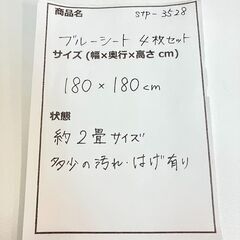 商品名 stp-3528
ブルーシート 4枚セット
サイズ (幅×奥行×高さ cm)
180×180cm
状態
約2畳サイズ
多少の汚れ・はげ有り